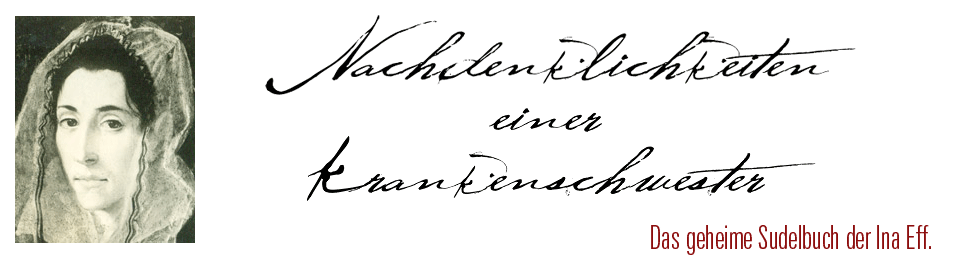 Nachdenklichkeiten
einer
Krankenschwester
Das geheime Sudelbuch der Ina Eff.